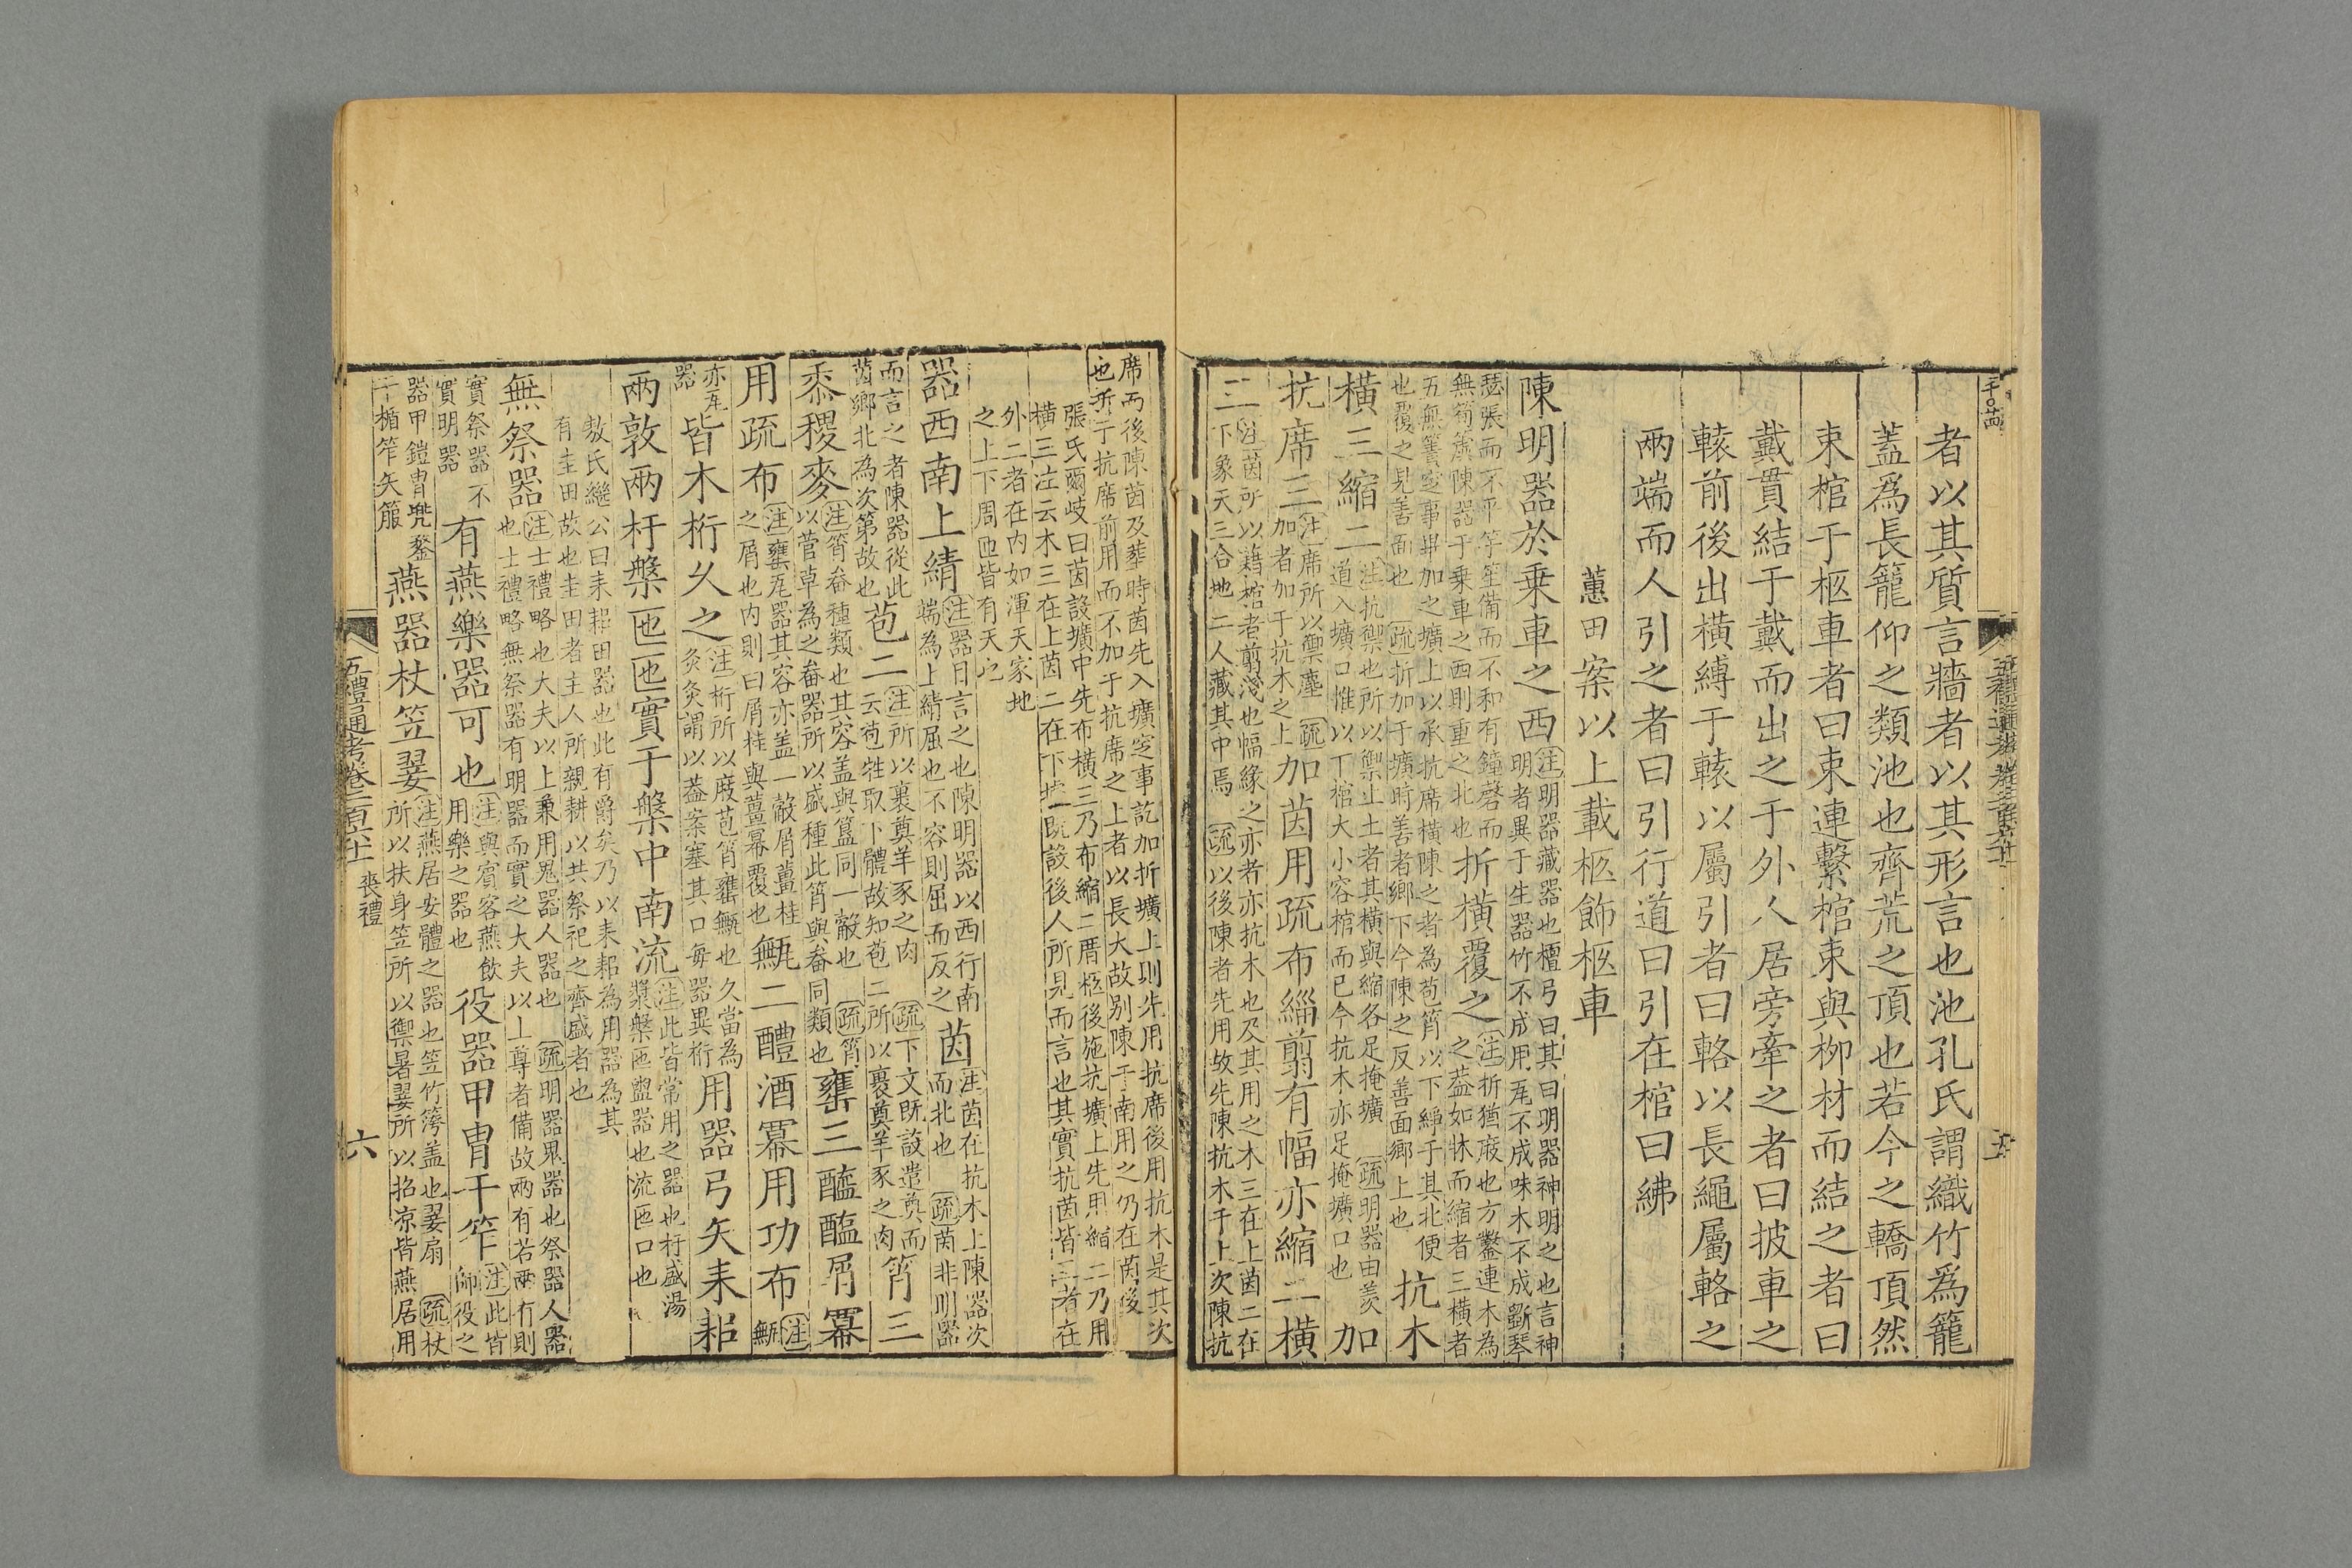 者以其質言牆者以其形言也池孔氏謂織竹爲籠
蓋爲長籠仰之類池也齊荒之頂也若今之轎頂然
束棺于柩車者曰束連繫棺束與柳材而結之者曰
戴貫結于戴而出之于外人居旁牽之者曰披車之
轅前後出橫縛于轅以屬引者曰輅以長繩屬輅之
兩端而人引之者曰引行道曰引在棺曰紼
蕙田案以上載柩飾柩車
陳明器於乗車之西注明器藏器也檀弓曰其曰明器神明之也言神
明者異于生器竹不成用瓦不成味木不成斵琴
瑟張而不平竽笙備而不和有鐘磬而
無筍簴陳器于乗車之西則重之北也折橫覆之注折猶庪也方鑿連木為
之葢如牀而縮者三橫者
五無簀窆事畢加之壙上以承抗席橫陳之者為苞筲以下綪于其北便
也覆之見善面也疏折加于壙時善者鄉下今陳之反善面鄉上也抗木
橫三縮二注抗禦也所以禦止土者其橫與縮各足掩壙疏明器由羨
道入壙口惟以下棺大小容棺而已今抗木亦足掩壙口也加
抗席三注席所以禦塵疏
加者加于抗木之上加茵用疏布緇翦有幅亦縮二橫
三注茵所以藉棺者翦淺也幅緣之亦者亦抗木也及其用之木三在上茵二在
下象天三合地二人藏其中焉疏以後陳者先用故先陳抗木于上次陳抗
席而後陳茵及葬時茵先入壙窆事訖加折壙上則先用抗席後用抗木是其次
也折于抗席前用而不加于抗席之上者以長大故別陳于南用之仍在茵後
張氏爾岐曰茵設壙中先布橫三乃布縮二厝柩後施抗壙上先用縮二乃用
橫三注云木三在上茵二在下據既設後人所見而言也其實抗茵皆三者在
外二者在內如渾天家地
之上下周匝皆有天也
器西南上綪注器目言之也陳明器以西行南
端為上綪屈也不容則屈而反之茵注茵在抗木上陳器次
而北也疏茵非明器
而言之者陳器從此
茵鄉北為次第故也苞二注所以裹奠羊豕之肉疏下文既設遣奠而
云苞牲取下體故知苞二所以裹奠羊豕之肉筲三
黍稷麥注筲畚種類也其容蓋與簋同一觳也疏筲
以菅草為之畚器所以盛種此筲與畚同類也罋三醯醢屑冪
用疏布注罋瓦器其容亦蓋一觳屑薑桂
之屑也內則曰屑桂與薑冪覆也甒二醴酒冪用功布注
甒
亦瓦
器皆木桁久之注桁所以庪苞筲罋甒也久當為
灸灸謂以蓋案塞其口每器異桁用器弓矢耒耜
兩敦兩杅槃匜匜實于槃中南流注此皆常用之器也杅盛湯
漿槃匜盥器也流匜口也
敖氏繼公曰耒耜田器也此有爵矣乃以耒耜為用器為其
有圭田故也圭田者主人所親耕以共祭祀之齊盛者也
無祭器注士禮略也大夫以上兼用鬼器人器也疏明器鬼器也祭器人器
也士禮略無祭器有明器而實之大夫以上尊者備故兩有若兩有則
實祭器不
實明器有燕樂器可也注與賓客燕飲
用樂之器也役器甲冑干笮注此皆
師役之
器甲鎧冑兜鍪
干楯笮矢箙燕器杖笠翣注燕居安體之器也笠竹䇾蓋也翣扇疏杖
所以扶身笠所以禦暑翣所以招凉皆燕居用
五禮通考卷二百六十一 喪禮
六